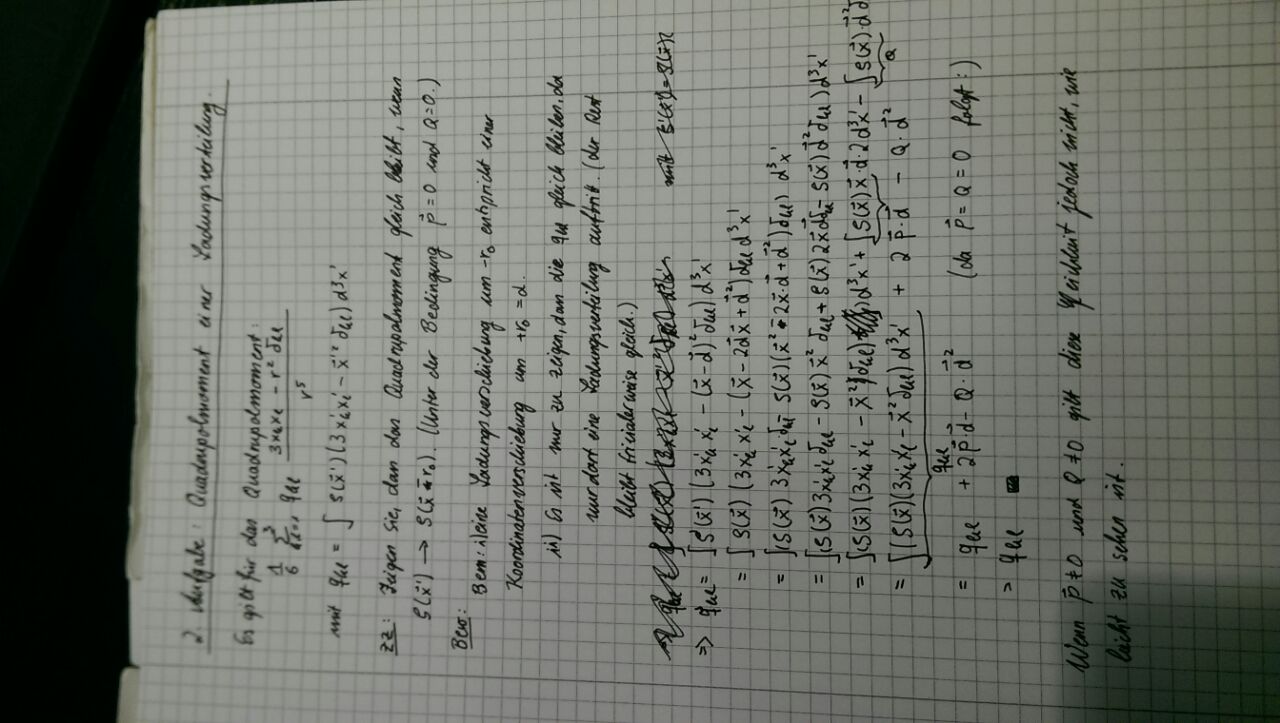 2. Aufgabe: Quadrupolmoment einer Ladungsverteilung.
Es gilt für das Quadrupolmoment:
1/6 Σ³ₖ,ₗ₌₁ qₖₗ (3xₖxₗ - r² δₖₗ)/r⁵
mit qₖₗ = ∫ ρ(x⃗')(3x'ₖx'ₗ - x⃗'² δₖₗ) d³x'
zz: Zeigen Sie, dass das Quadrupolmoment gleich bleibt, wenn
ρ(x⃗') → ρ(x⃗ r⃗₀). (Unter der Bedingung p⃗ = 0 und Q = 0.)
Bew:
Bem: i) eine Ladungsverschiebung um -r₀ entspricht einer
Koordinatenverschiebung um +r₀ = d.
ii) Es ist nur zu zeigen, dass die qₖₗ gleich bleiben, da
nur dort eine Ladungsverteilung auftritt. (der Rest
bleibt trivialerweise gleich.)
=> qₖₗ = ∫ ρ(x⃗') (3x'ₖx'ₗ - (x⃗ - d⃗)² δₖₗ) d³x'
= ∫ ρ(x⃗) (3x'ₖx'ₗ - (x⃗ - 2dx⃗ + d⃗²) δₖₗ d³x'
= ∫ (ρ(x⃗) 3x'ₖx'ₗ δₖₗ ρ(x⃗)(x⃗² - 2x⃗·d + d⃗²) δₖₗ) d³x'
= ∫ (ρ(x⃗) 3x'ₖx'ₗ δₖₗ - ρ(x⃗) x⃗² δₖₗ + ρ(x⃗) 2x⃗d δₖₗ - ρ(x⃗) d⃗² δₖₗ) d³x'
= ∫ (ρ(x⃗)(3x'ₖx'ₗ - x⃗² δₖₗ) d³x' + ∫ ρ(x⃗) x⃗·d·2 d³x' - ∫ ρ(x⃗)·d⃗²
= ∫ (ρ(x⃗)(3x'ₖx'ₗ - x⃗² δₖₗ) d³x' + 2 p⃗·d - Q·d⃗²
Q
qₖₗ
= qₖₗ + 2p⃗d - Q·d⃗² (da p⃗ = Q = 0 folgt:)
= qₖₗ ■
Wenn p⃗ ≠ 0 und Q ≠ 0 gilt diese jedoch nicht, wie
leicht zu sehen ist.